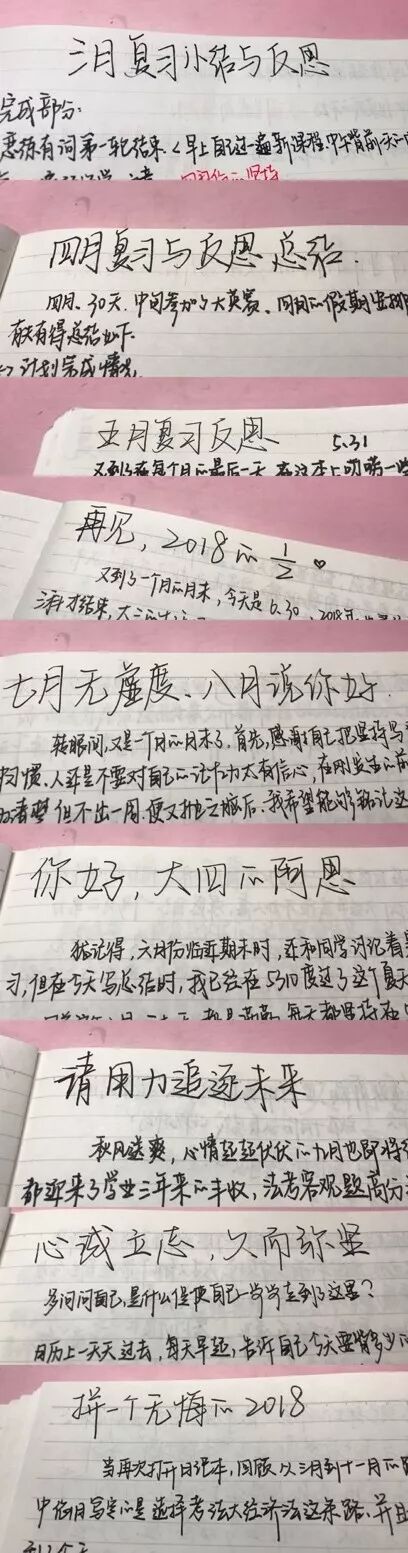 三月复习小结与反思
完成部分:
恋练有词第一轮结束.<早上自己过一遍新课程,中午背前天的
四月复习与反思总结.
四月、30天.中间参加了大英赛、四月的假期安排
有失有得总结如下.
<1>计划完成情况
五月复习反思 5.31
又到了在每个月的最后一天 在这本上唠唠一些
再见,2018的1/2 ♥
又到了一个月的月末,今天是6.30,2018年
才结束,大三的
七月无虚度、八月说你好.
转眼间,又是一个月的月末了.首先,感谢自己把坚持写
习惯.人还是不要对自己的记忆力太有信心,在刚发生的前
但不出一周.便又抛之脑后.我希望能够铭记这
你好,大四的阿恩
犹记得,六月份临近期末时,还和同学讨论着
习,但在今天写总结时,我已经在5310度过了这个夏天
每天都坚持在
请用力追逐未来
秋风送爽,心情起起伏伏的九月也即将
都迎来了学业三年来的丰收,法考客观题高分
心诚立志,久而弥坚
多问问自己,是什么促使自己一步步走到了这里?
日历上一天天过去,每天早起,告诉自己今天要背多少
拼一个无悔的2018
当再次打开日记本,回顾从三月到十一月的
中依旧笃定的是选择考法大经济法这条路.并且